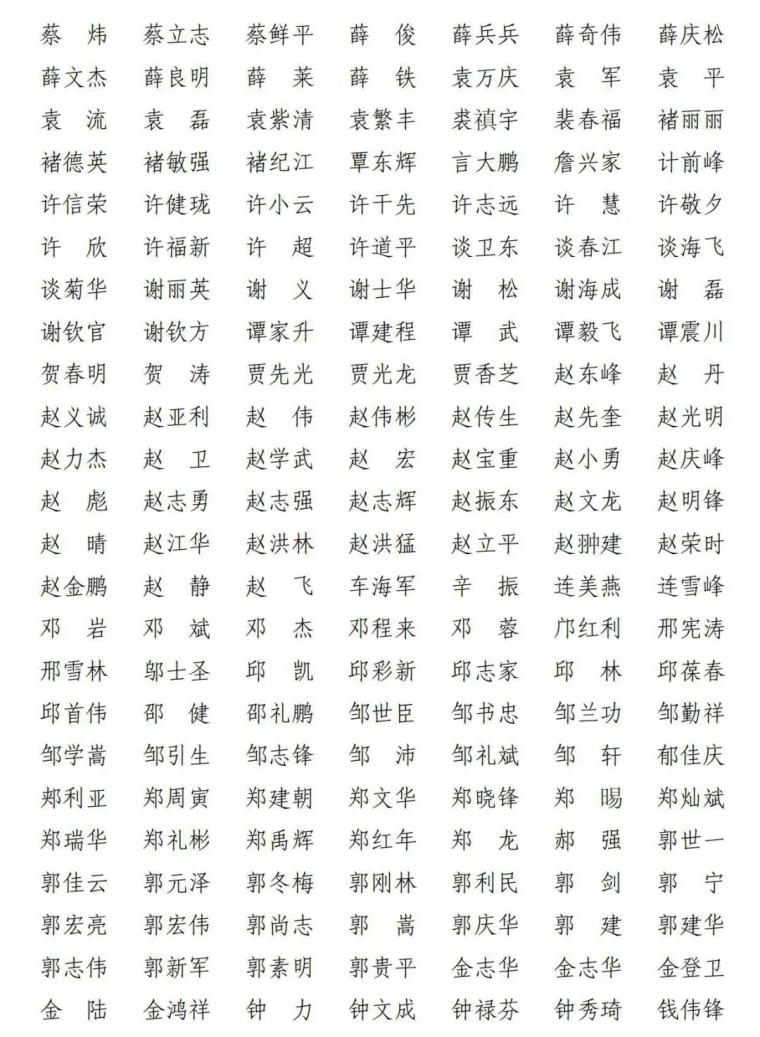 蔡　炜　蔡立志　蔡鲜平　薛　俊　薛兵兵　薛奇伟　薛庆松
薛文杰　薛良明　薛　莱　薛　铁　袁万庆　袁　军　袁　平
袁　流　袁　磊　袁紫清　袁繁丰　裘禛宇　裴春福　褚丽丽
褚德英　褚敏强　褚纪江　覃东辉　言大鹏　詹兴家　计前峰
许信荣　许健珑　许小云　许干先　许志远　许　慧　许敬夕
许　欣　许福新　许　超　许道平　谈卫东　谈春江　谈海飞
谈菊华　谢丽英　谢　义　谢士华　谢　松　谢海成　谢　磊
谢钦官　谢钦方　谭家升　谭建程　谭　武　谭毅飞　谭震川
贺春明　贺　涛　贾先光　贾光龙　贾香芝　赵东峰　赵　丹
赵义诚　赵亚利　赵　伟　赵伟彬　赵传生　赵先奎　赵光明
赵力杰　赵　卫　赵学武　赵　宏　赵宝重　赵小勇　赵庆峰
赵　彪　赵志勇　赵志强　赵志辉　赵振东　赵文龙　赵明锋
赵　晴　赵江华　赵洪林　赵洪猛　赵立平　赵翀建　赵荣时
赵金鹏　赵　静　赵　飞　车海军　辛　振　连美燕　连雪峰
邓　岩　邓　斌　邓　杰　邓程来　邓　蓉　邝红利　邢宪涛
邢雪林　邬士圣　邱　凯　邱彩新　邱志家　邱　林　邱葆春
邱首伟　邵　健　邵礼鹏　邹世臣　邹书忠　邹兰功　邹勤祥
邹学嵩　邹引生　邹志锋　邹　沛　邹礼斌　邹　轩　郁佳庆
郏利亚　郑周寅　郑建朝　郑文华　郑晓锋　郑　晹　郑灿斌
郑瑞华　郑礼彬　郑禹辉　郑红年　郑　龙　郝　强　郭世一
郭佳云　郭元泽　郭冬梅　郭刚林　郭利民　郭　剑　郭　宁
郭宏亮　郭宏伟　郭尚志　郭　嵩　郭庆华　郭　建　郭建华
郭志伟　郭新军　郭素明　郭贵平　金志华　金志华　金登卫
金　陆　金鸿祥　钟　力　钟文成　钟禄芬　钟秀琦　钱伟锋